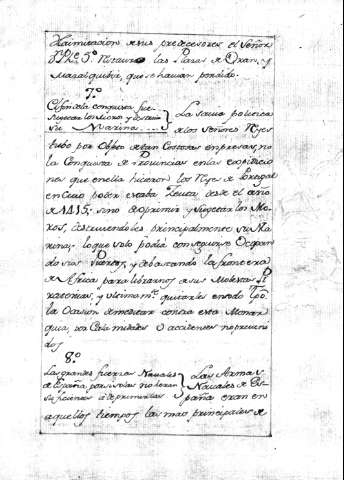 A imitacion de sus predecesores el Señor
Dn. Phe. 5º restauro las Plazas de Oran, y
Mazalquibir, que se havian perdido.
7º
El fin de la conquista fue
sugetar los Moros, y destruir
su Marina.
La savia politica
de los Señores Reyes
tubo por Objeto de tan Costosas empresas, no
la Conquista de Provincias en las expedicio
nes que en ella hicieron los Reyes de Portugal
en Cuio poder estaba Zeuta desde el año
de 1415, sino deprimir y sugetar los Mo
ros, destruiendoles principalmente su Ma
rina; lo que solo podia conseguirse Ocupan
do sus Puertos, y abastando la frontera
de Africa para librarnos de sus molestas Pi
raterias, y ultimamte. quitarles en todo Tpo.
la Ocasion de meditar contra esta Monar
quia, por Calamidades o accidentes no preveni
dos.
8º
Las grandes fuerzas Navales
de España, por si solas no heran
suficientes a deprimirlas
Las Armas
Navales de Es-
paña eran en
aquellos tiempos las mas principales de